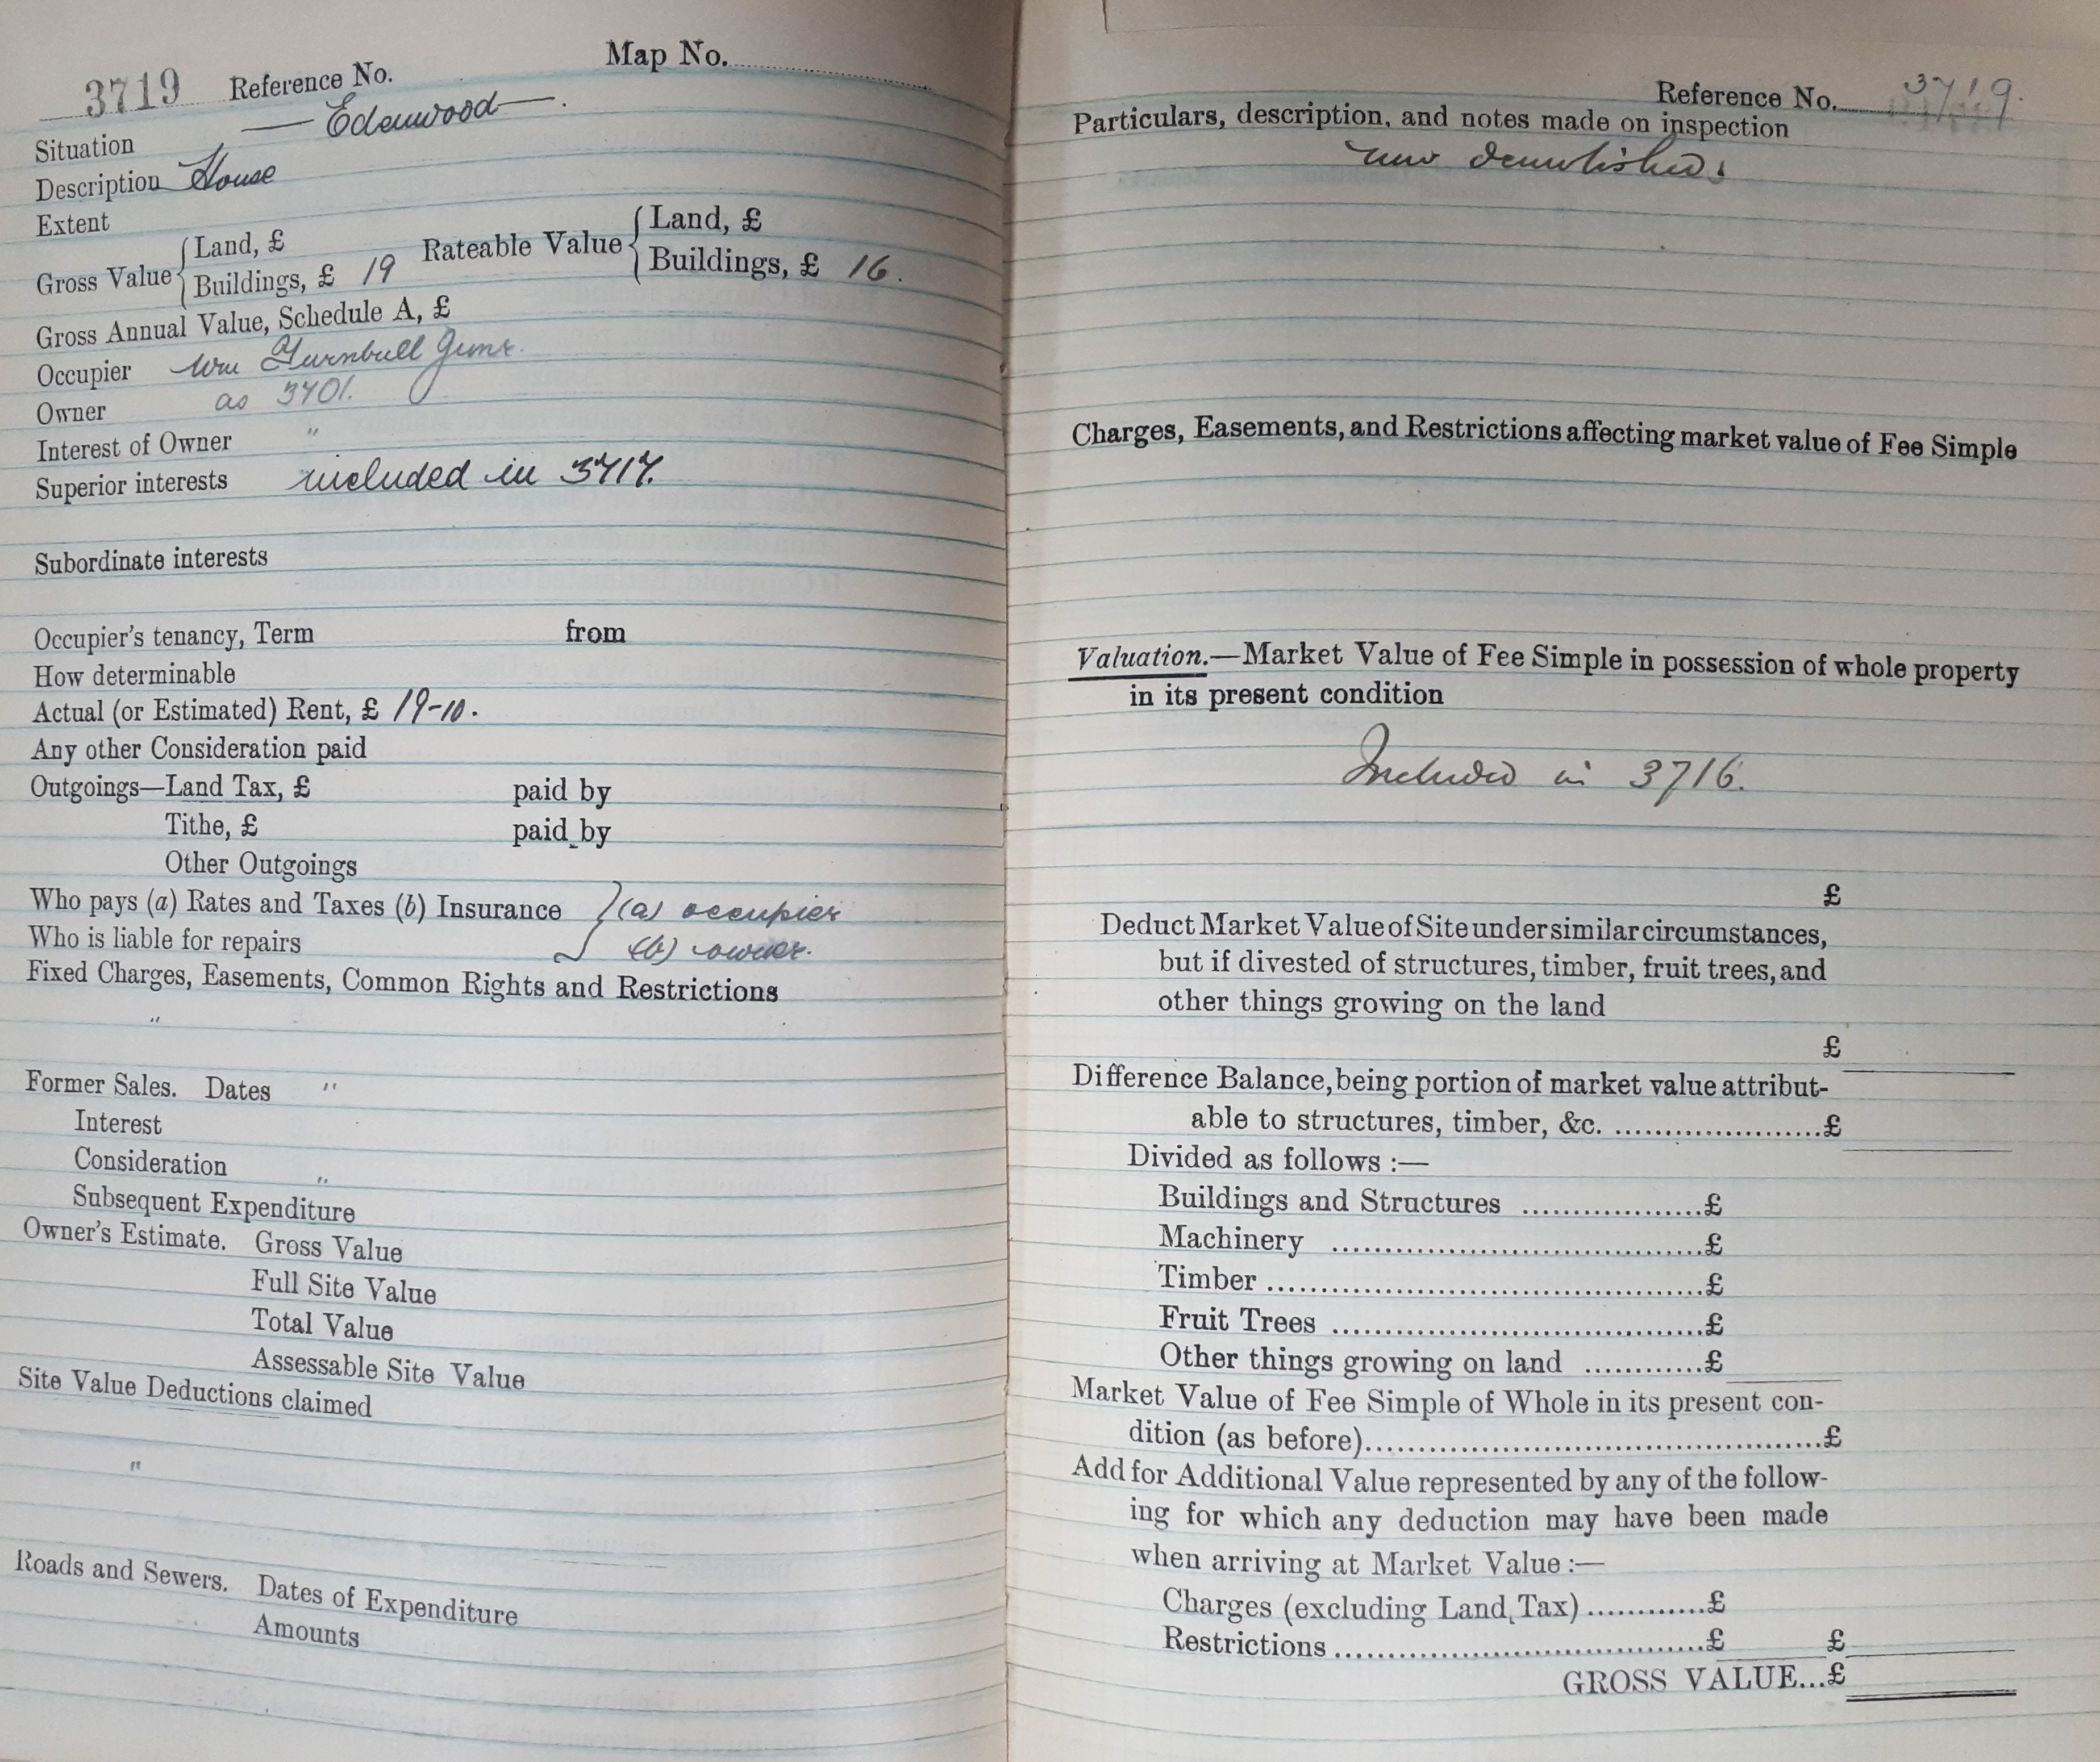 Map No.
3719 Reference No.
Situation — Edenwood —.
Description House
Extent
Gross Value { Land, £
Buildings, £ 19
Rateable Value { Land, £
Buildings, £ 16.
Gross Annual Value, Schedule A, £
Occupier Wm Turnbull Junr.
Owner as 3701.
Interest of Owner "
Superior interests included in 3717.
Subordinate interests
Occupier's tenancy, Term from
How determinable
Actual (or Estimated) Rent, £ 19-10.
Any other Consideration paid
Outgoings—Land Tax, £ paid by
Tithe, £ paid by
Other Outgoings
Who pays (a) Rates and Taxes (b) Insurance } (a) occupier
Who is liable for repairs (b) owner.
Fixed Charges, Easements, Common Rights and Restrictions
"
Former Sales. Dates "
Interest
Consideration "
Subsequent Expenditure
Owner's Estimate. Gross Value
Full Site Value
Total Value
Assessable Site Value
Site Value Deductions claimed
"
Roads and Sewers. Dates of Expenditure
Amounts
Reference No. 3719.
Particulars, description, and notes made on inspection
now demolished.
Charges, Easements, and Restrictions affecting market value of Fee Simple
Valuation.—Market Value of Fee Simple in possession of whole property
in its present condition
Included in 3716.
£
Deduct Market Value of Site under similar circumstances,
but if divested of structures, timber, fruit trees, and
other things growing on the land
£
Difference Balance, being portion of market value attribut-
able to structures, timber, &c. ......................£
Divided as follows :—
Buildings and Structures ...................£
Machinery .......................................£
Timber .............................................£
Fruit Trees .......................................£
Other things growing on land ............£
Market Value of Fee Simple of Whole in its present con-
dition (as before)...............................................£
Add for Additional Value represented by any of the follow-
ing for which any deduction may have been made
when arriving at Market Value :—
Charges (excluding Land Tax) ............£
Restrictions .......................................£ £
GROSS VALUE...£